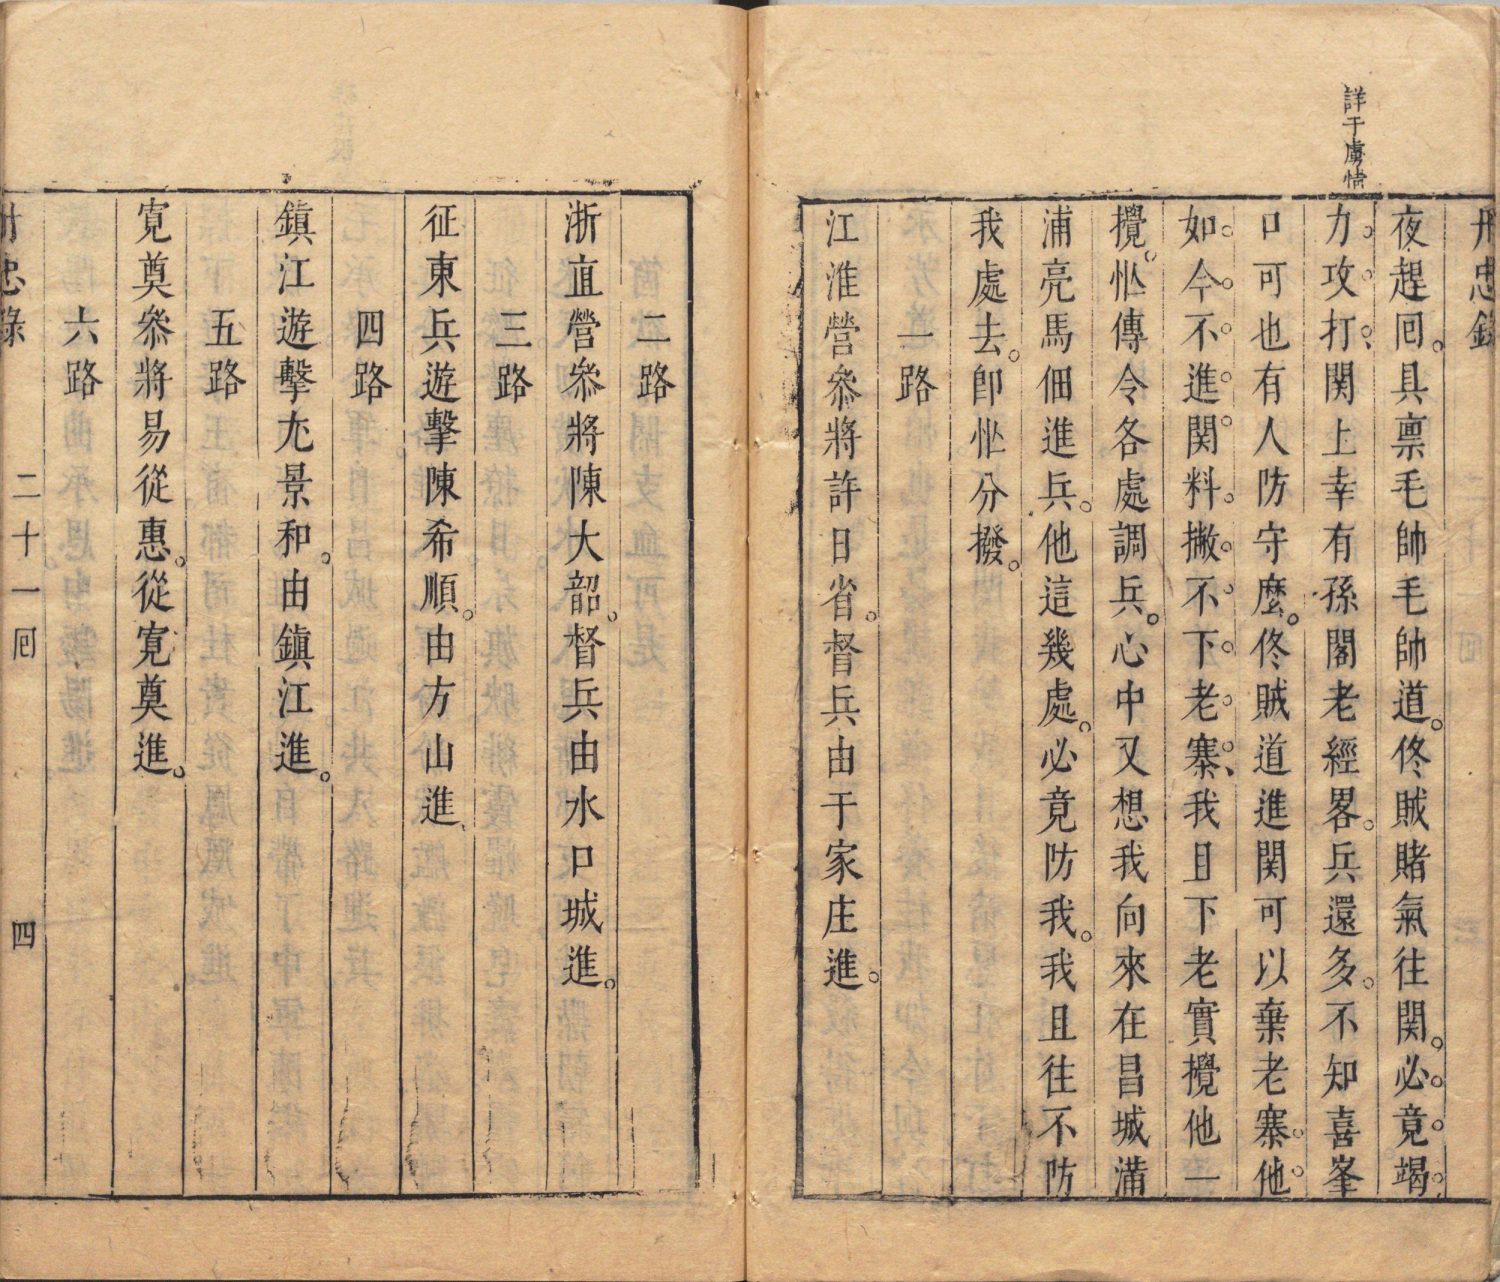 詳于虜情
丹忠錄
夜趕囘。具禀毛帥毛帥道。佟賊賭氣往關。必竟竭
力攻打、関上幸有孫閣老經畧。兵還多。不知喜峯
口可也有人防守麽。佟賊道進関可以棄老寨。他
如今不進関料撇不下老寨、我目下老實攪他一
攪。忙傳令各處調兵。心中又想我向來在昌城滿
浦亮馬佃進兵。他這幾處。必竟防我。我且往不防
我處去。卽忙分撥。
一路
江淮營叅將許日省。督兵由于家庄進。
二路
浙直營叅將陳大韶。督兵由水口城進。
三路
征東兵遊擊陳希順。由方山進
四路
鎮江遊擊尤景和。由鎮江進。
五路
寛奠叅將易從惠。從寛奠進。
六路
丹忠錄 二十一囘 四